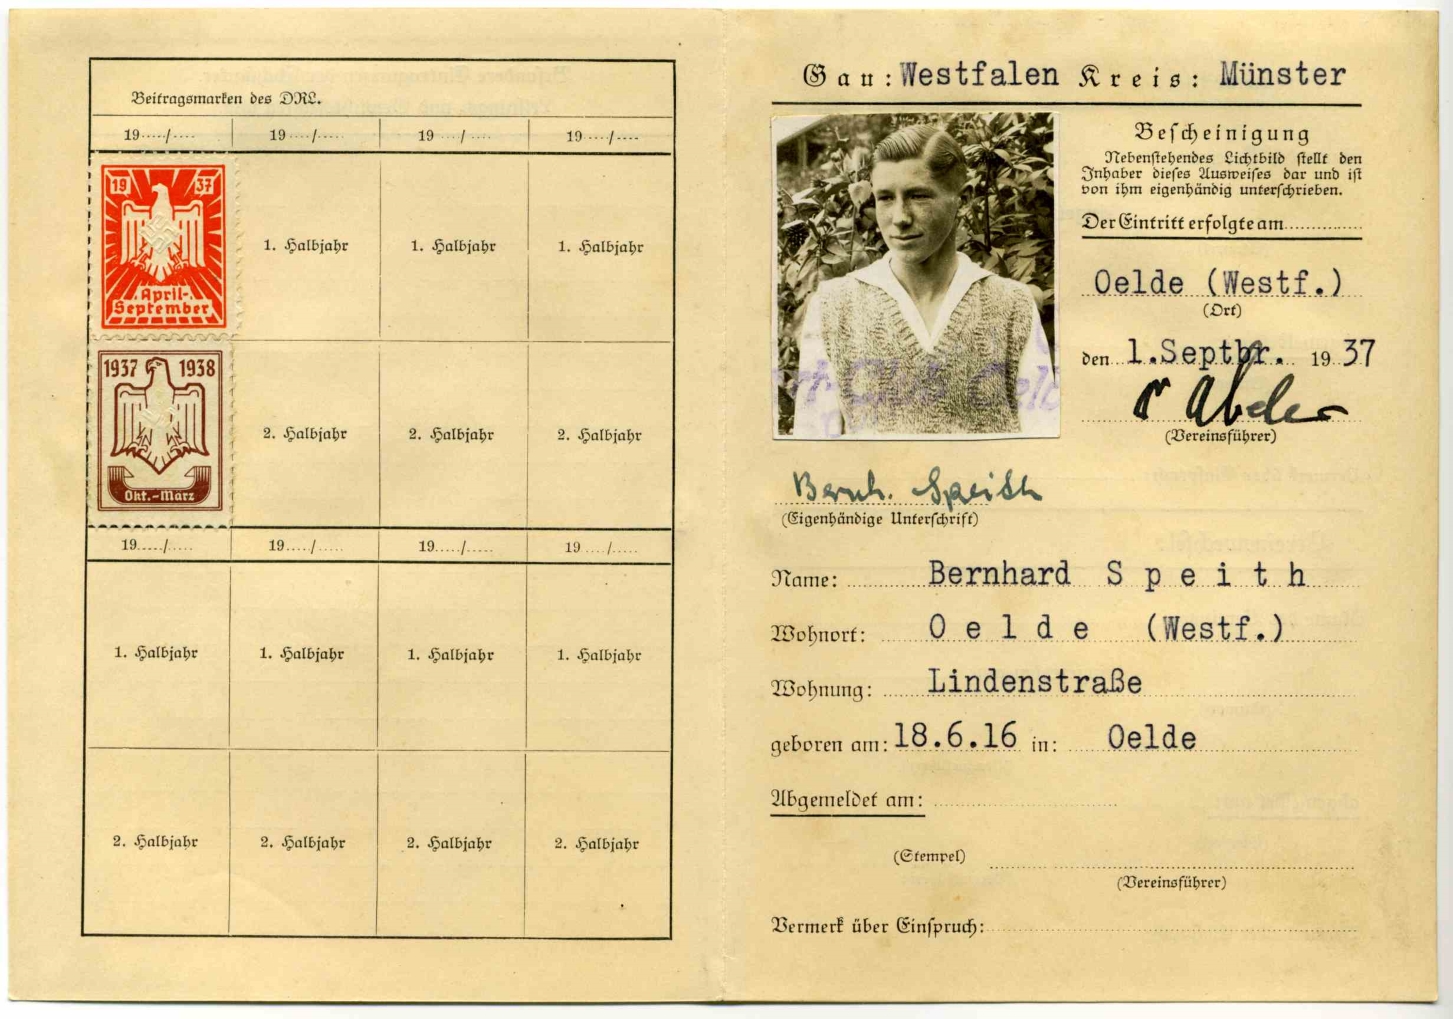 Beitragsmarken des DRL.
19...../..... 19...../..... 19...../..... 19...../.....
19 37
April-
September
1. Halbjahr 1. Halbjahr 1. Halbjahr
1937 1938
Okt.-März
2. Halbjahr 2. Halbjahr 2. Halbjahr
19...../..... 19...../..... 19...../..... 19...../.....
1. Halbjahr 1. Halbjahr 1. Halbjahr 1. Halbjahr
2. Halbjahr 2. Halbjahr 2. Halbjahr 2. Halbjahr
Gau: Westfalen Kreis: Münster
Bescheinigung
Nebenstehendes Lichtbild stellt den
Inhaber dieses Ausweises dar und ist
von ihm eigenhändig unterschrieben.
Der Eintritt erfolgte am
Oelde (Westf.)
(Ort)
den 1.Septbr. 1937
Abeler
(Vereinsführer)
Club Oeld
Bernh. Speith
(Eigenhändige Unterschrift)
Name: Bernhard Speith
Wohnort: Oelde (Westf.)
Wohnung: Lindenstraße
geboren am: 18.6.16 in: Oelde
Abgemeldet am:
(Stempel)
(Vereinsführer)
Vermerk über Einspruch: